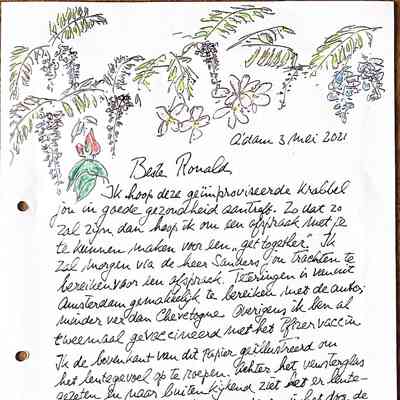 A'dam 3 mei 2021
Beste Ronald,
Ik hoop deze geïmproviseerde krabbel
jou in goede gezondheid aantreft. Zo dat zo
zal zijn dan hoop ik om een afspraak met je
te kunnen maken voor een „get together". Ik
zal morgen via de heer Sanders jou trachten te
bereiken voor een afspraak. Teteringen is vanuit
Amsterdam gemakkelijk te bereiken met de auto:
minder ver dan Chevetogne. Overigens ik ben al
tweemaal gevaccineerd met het Pfizer vaccin
Ik de bovenkant van dit papier geïllustreerd om
het lentegevoel op te roepen. Achter het vensterglas
gezeten en naar buiten kijkend ziet het er lente-
het door de